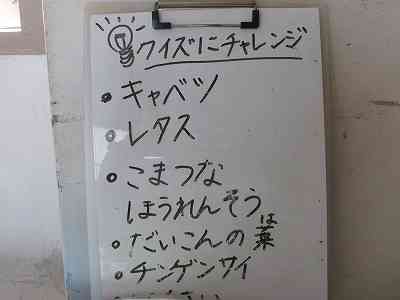 クイズにチャレンジ
• キャベツ
• レタス
• こまつな
ほうれんそう
• だいこんの葉は
• チンゲンサイ